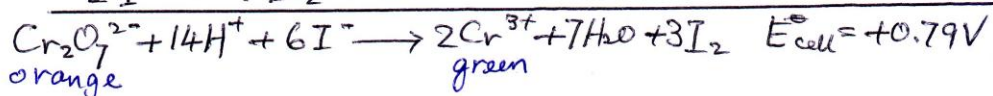 Cr₂O₇²⁻ + 14H⁺ + 6I⁻ ⟶ 2Cr³⁺ + 7H₂O + 3I₂ E°cell = +0.79V
orange green